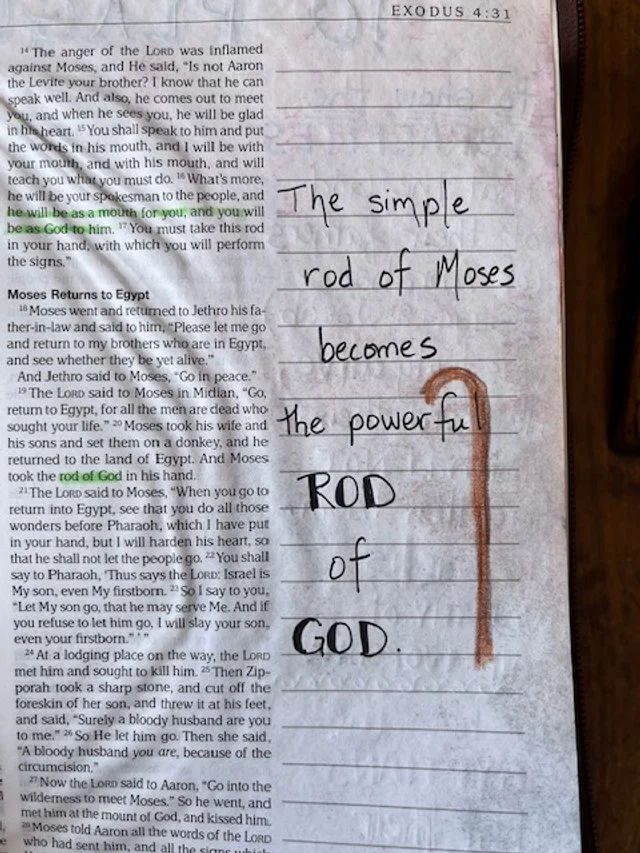 EXODUS 4:31
14 The anger of the LORD was inflamed
against Moses, and He said, “Is not Aaron
the Levite your brother? I know that he can
speak well. And also, he comes out to meet
you, and when he sees you, he will be glad
in his heart. 15 You shall speak to him and put
the words in his mouth, and I will be with
your mouth, and with his mouth, and will
teach you what you must do. 16 What’s more,
he will be your spokesman to the people, and
he will be as a mouth for you, and you will
be as God to him. 17 You must take this rod
in your hand, with which you will perform
the signs.”
Moses Returns to Egypt
18 Moses went and returned to Jethro his fa-
ther-in-law and said to him, “Please let me go
and return to my brothers who are in Egypt,
and see whether they be yet alive.”
And Jethro said to Moses, “Go in peace.”
19 The LORD said to Moses in Midian, “Go,
return to Egypt, for all the men are dead who
sought your life.” 20 Moses took his wife and
his sons and set them on a donkey, and he
returned to the land of Egypt. And Moses
took the rod of God in his hand.
21 The LORD said to Moses, “When you go to
return into Egypt, see that you do all those
wonders before Pharaoh, which I have put
in your hand, but I will harden his heart, so
that he shall not let the people go. 22 You shall
say to Pharaoh, ‘Thus says the LORD: Israel is
My son, even My firstborn. 23 So I say to you,
“Let My son go, that he may serve Me. And if
you refuse to let him go, I will slay your son,
even your firstborn.” ’ ”
24 At a lodging place on the way, the LORD
met him and sought to kill him. 25 Then Zip-
porah took a sharp stone, and cut off the
foreskin of her son, and threw it at his feet,
and said, “Surely a bloody husband are you
to me.” 26 So He let him go. Then she said,
“A bloody husband you are, because of the
circumcision.”
27 Now the LORD said to Aaron, “Go into the
wilderness to meet Moses.” So he went, and
met him at the mount of God, and kissed him.
28 Moses told Aaron all the words of the LORD
who had sent him, and all the signs which
The simple
rod of Moses
becomes
the powerful
ROD
of
GOD.